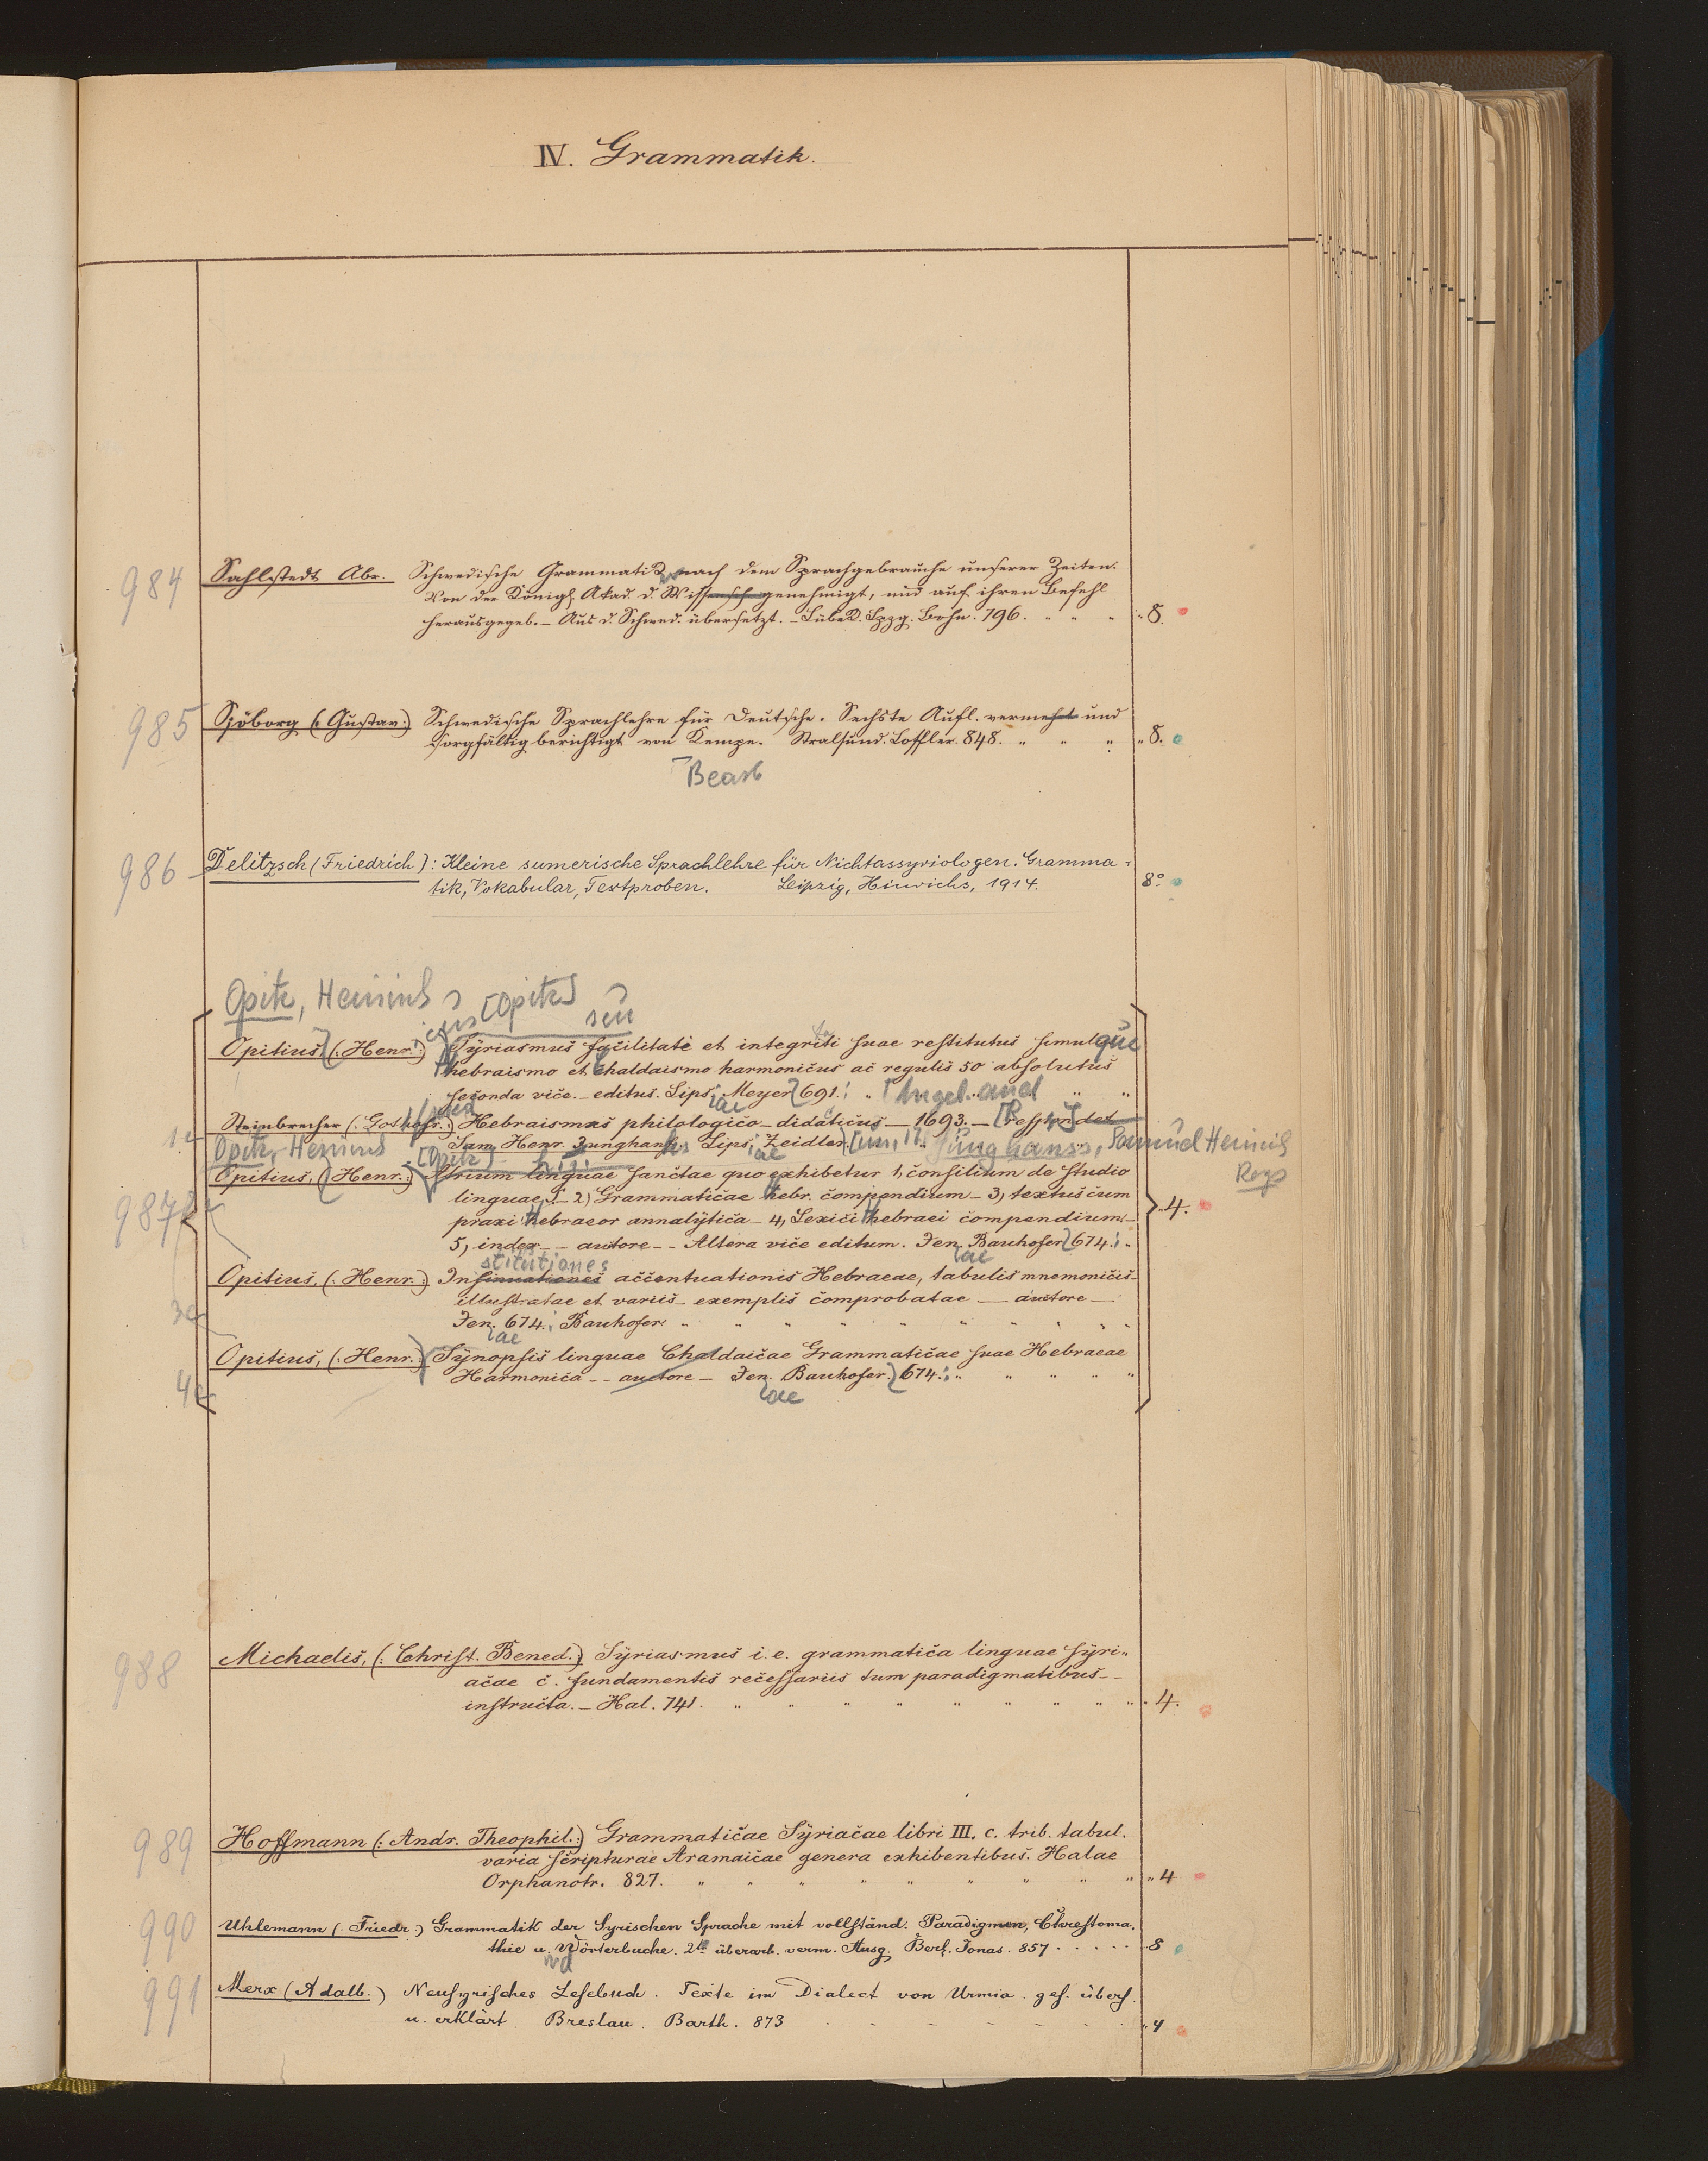 IV. Grammatik.
984 Sahlstedt Abr. Schwedische Grammatik nach dem Sprachgebrauche unserer Zeiten.
Von der Königl. Akad. d. Wissensch genehmigt, und auf ihren Befehl
herausgegeb. – Aus d. Schwed. übersetzt. – Lübeck. Lpzg. Bohn. 796. " " " " 8.
985 Sjöborg (: Gustav :) Schwedische Sprachlehre für Deutsche. Sechste Aufl. vermehrt und
sorgfältig berichtigt von Kempe. Stralsund. Löffler. 848. " " " " 8.
Bearb
986 Delitzsch (Friedrich): Kleine sumerische Sprachlehre für Nichtassyriologen. Gramma-
tik, Vokabular, Textproben. Leipzig, Hinrichs, 1914. 8°
Opitz, Heinrich [Opitz]
icus seu
Opitius (: Henr. :) Syriasmus facilitati et integriti suae restitutus simulque
hebraismo et Chaldaismo harmonicus ac regulis 50 absolutus
seconda vice – editus. Lips. Meyer 691. " " "
Steinbrecher (: Gothofr. :) Hebraismus philologico – didaticus – 1693. – respondet
1 Sam. Henr. Junghans. Lips. Zeidler. Junghanss, Samuel Heinrich
Opitz, Heinrich [Opitz] Resp
Opitius, (: Henr. :) Atrium linguae sanctae quo exhibetur 1, consilium de studio
987 linguae S – 2) Grammaticae hebr. compendium – 3, textus cum
praxi hebraeor annalytica – 4, Lexici hebraei compendium – 4.
5, index – – autore – – Altera vice editum. Jen. Bauhofer 674. "
stitutiones ae
Opitius, (: Henr. :) Insinuationes accentuationis Hebraeae, tabulis mnemonicis –
illustratae et variis – exemplis comprobatae – auctore –
3 Jen. 674. Bauhofer. " " " " " " " "
ae
Opitius, (: Henr. :) Synopsis linguae Chaldaicae Grammaticae suae Hebraeae
4 Harmonica – – auctore – Jen. Bauhofer. 674. " " " " "
ae
988 Michaelis, (: Christ. Bened. :) Syriasmus i. e. grammatica linguae Syri-
acae c. fundamentis necessariis tum paradigmatibus – –
instructa. – Hal. 741. " " " " " " " " " 4.
989 Hoffmann (: Andr. Theophil. :) Grammaticae Syriacae libri III. c. trib. tabul.
varia scripturae Aramaicae genera exhibentibus. Halae
Orphanotr. 827. " " " " " " " " " " 4
990 Uhlemann (: Friedr. :) Grammatik der Syrischen Sprache mit vollständ. Paradigmen, Chrestoma,
thie u. Wörterbuche. 2te überarb. verm. Ausg. Berl. Jonas. 857 . . . . . 8
991 Merx (Adalb.) Neusyrisches Lesebuch. Texte im Dialect von Urmia. ges. übers.
u. erklärt. Breslau. Barth. 873 " 4